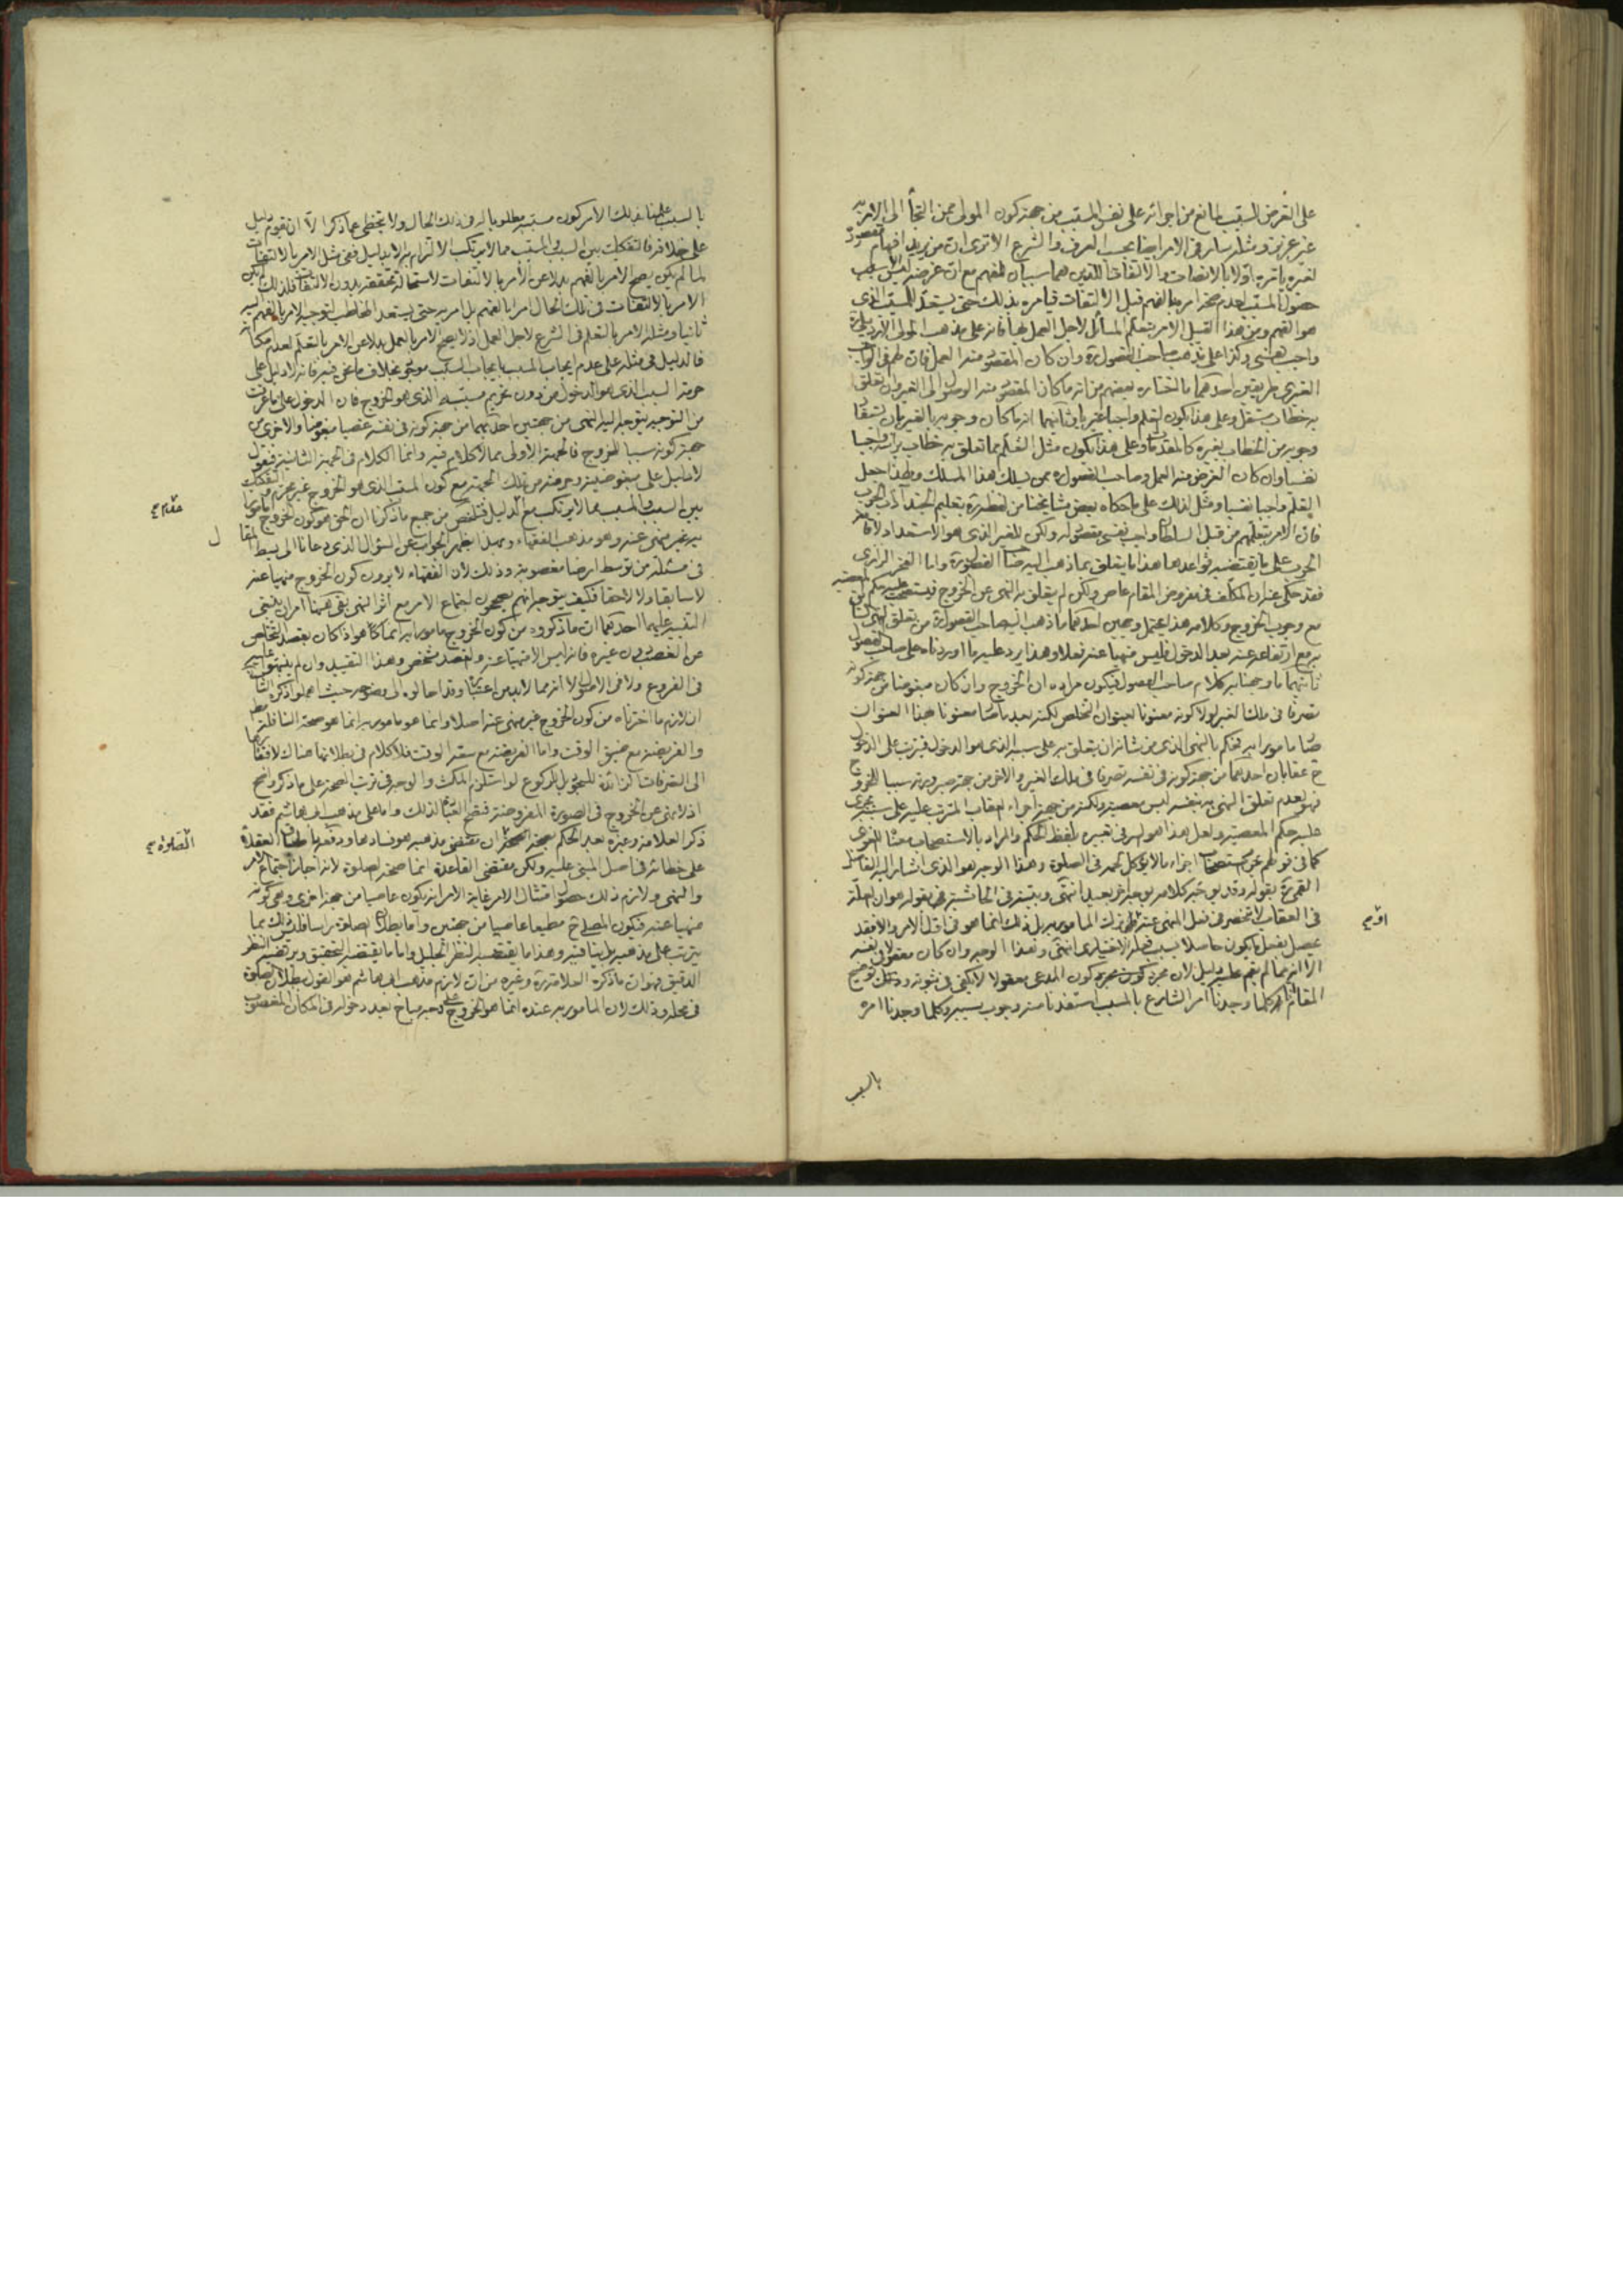 على الغرض المسبب لمانع من اجرائه على نفس المسبب من جهة كون المولى ممن التجأ الى الامر به
غير عزيز ومثله سار فى الامر ايضا بحسب العرف والشرع الا ترى ان من يريد افهام مقصود
لغيره يامره اولا بالانصات والالتفات اللذين هما سببان للفهم مع ان غرضه ليس الا
حصول المسبب لعدم صحة امره بالفهم قبل الالتفات فيامره بذلك حتى يستعد للمسبب الذى
هو الفهم ومن هذا القبيل الامر بتعلم المسائل لاجل العمل بها فانه على مذهب المولى الاردبيلى ره
واجب نفسى وكذا على مذهب صاحب الفصول ره وان كان المقصود منه العمل فان لهم فى الواجب
الغيرى طريقين احدهما ما اختاره بعضهم من انه ما كان المقصود منه الوصول الى الغير وان تعلق
به خطاب مستقل وعلى هذا يكون التعلم واجبا غيريا وثانيهما انه ما كان وجوبه بالغير بان يستفاد
وجوبه من الخطاب بغيره كالمقدمات وعلى هذا يكون مثل التعلم مما تعلق به خطاب براسه واجبا
نفسيا وان كان الغرض منه العمل وصاحب الفصول ره ممن يسلك هذا المسلك ولهذا جعل
التعلم واجبا نفسيا ومثل لذلك على ما حكاه بعض مشايخنا من لفظه ره بتعليم الجند آداب الحرب
فان الامر بتعلمهم من قبل السلطان واجب نفسى مقصود له ولكن للغير الذى هو الاستعداد لاقامة
الحرب على ما يقتضيه قواعدها هذا ما يتعلق بما ذهب اليه صاحب الفصول ره واما الفخر الرازى
فقد حكى عنه ان المكلف فى مفروض المقام عاص ولكن لم يتعلق به النهى عن الخروج فيستصحب عليه حكم المعصية
مع وجوب الخروج وكلامه هذا يحتمل وجهين احدهما ما ذهب اليه صاحب الفصول ره من تعلق النهى السابق
به مع ارتفاعه عنه بعد الدخول فليس منهيا عنه فعلا وهذا يرد عليه ما اوردناه على صاحب الفصول
ثانيهما ما وجهنا به كلام صاحب الفصول فيكون مراده ان الخروج وان كان مبغوضا من جهة كونه
تصرفا فى ملك الغير لولا كونه معنونا بعنوان التخلص لكنه بعد ما صار معنونا بهذا العنوان
صار مامورا به نحكم بالنهى الذى من شانه ان يتعلق به على سببه الذى هو الدخول فيترتب على الدخول
ح عقابان احدهما من جهة كونه فى نفسه تصرفا فى ملك الغير والاخر من جهة صيرورته سببا للخروج
فهو لعدم تعلق النهى به بنفسه ليس معصية ولكنه من جهة اجراء العقاب المترتب عليه على سببه يجرى
عليه حكم المعصية ولعل هذا هو السر فى تعبيره بلفظ الحكم والمراد بالاستصحاب معناه اللغوى
كما فى قولهم عن مستصحبات اجزاء ما لا يؤكل لحمه فى الصلوة وهذا الوجه هو الذى اشار اليه الفاضل
القمى ره بقوله وقد يوجه كلامه بوجه اخر بعيد انتهى وبينه فى الحاشية فى بقوله هو ان العلة
فى العقاب لا تنحصر فى فعل المنهى عنه وترك المامور به بل ذلك انما هو فى اول الامر والا فقد
يحصل بفعل ما يكون حاصلا بسبب فعله الاختيارى انتهى وهذا الوجه وان كان معقولا فى نفسه
الا انه مما لم يقم عليه دليل لان مجرد كون مجرد كون المدعى معقولا لا يكفى فى ثبوته وذلك توضيح
المقام انه كلما وجدنا امر الشارع بالمسبب استفدنا منه وجوب سببه وكلما وجدنا امره
اقوم
بالسبب
بالسبب علمنا بذلك الامر كون مسببه مطلوبا له فى ذلك الحال ولا يتخطى عما ذكر الا ان يقوم دليل
على خلافه فالتفكيك بين السبب والمسبب مما لا يرتكب الالتزام به الا بدليل ففى مثل الامر بالالتفات
لما لم يكن يصح الامر بالفهم بدلا عن الامر بالالتفات لاستحالة تحققه بدون الالتفات فلذلك لم يكن
الامر بالالتفات فى تلك الحال امرا بالفهم بل امر به حتى يستعد المخاطب لتوجيه الامر بالفهم اليه
ثانيا ومثله الامر بالتعلم فى الشرع لاجل العمل اذ لا يصح الامر بالعمل بدلا عن الامر بالتعلم لعدم امكانه
فالدليل فى مثله على عدم ايجاب المسبب بايجاب السبب موجود بخلاف ما نحن فيه فانه لا دليل على
حرمة السبب الذى هو الدخول من دون تحريم مسببه الذى هو الخروج فان الدخول على ما عرفت
من التوجيه يتوجه اليه النهى من جهتين احديهما من جهة كونه فى نفسه غصبا مبغوضا والاخرى من
جهة كونه سببا للخروج فالجهة الاولى مما لا كلام فيه وانما الكلام فى الجهة الثانية فنقول
لا دليل على مبغوضيته وحرمته من تلك الجهة مع كون المسبب الذى هو الخروج غير محرم فالتفكيك
بين السبب والمسبب مما لا يرتكب مع الدليل فتلخص من جميع ما ذكرنا ان الحق هو كون الخروج مامورا
به غير منهى عنه وهو مذهب الفقهاء ومما ذكر يظهر الجواب عن السؤال الذى دعانا الى بسط المقال
فى مسئلة من توسط ارضا مغصوبة وذلك لان الفقهاء لا يرون كون الخروج منهيا عنه
لا سابقا ولا لاحقا فكيف يتوجه انهم يصححون اجتماع الامر مع اثر النهى بقى هيهنا امران ينبغى
التنبيه عليهما احدهما ان ما ذكروه من كون الخروج مامورا به انما هو اذا كان بقصد التخلص
عن الغصب دون غيره فانه ليس الا منهيا عنه والقصد مشخص وهذا التقييد وان لم ينبهوا عليه
فى الفروع ولا فى الاصول الا انه مما لا بد من اعتباره وقد احالوه الى وضوحه حيث اهملوا ذكره الثانى
ان لازم ما اخترناه من كون الخروج غير منهى عنه اصلا وانما هو مامور به انما هو صحة النافلة مطلقا
والفريضة مع ضيق الوقت واما الفريضة مع سعة الوقت فلا كلام فى بطلانها هناك لافتقارها
الى التصرفات الزائدة للسجود بل للركوع لو استلزم المكث والوجه فى ترتب الصحة على ما ذكر واضح
اذ لا نهى عن الخروج فى الصورة المفروضة فتقع العبادة لذلك واما على مذهب ابى هاشم فقد
ذكر العلامة وغيره بعد الحكم بصحة ان مقتضى مذهبه هو فسادها ووقعها العقلاء
على خطائه فى اصل المبنى عليه ولكن مقتضى القاعدة انما صحة الصلوة لانه اجاز اجتماع الامر
والنهى ولازم ذلك حصول امتثال الامر غاية الامر انه يكون عاصيا من جهة اخرى وهى كونه
منهيا عنه فيكون المصلى ح مطيعا عاصيا من جهتين واما بطلان الصلوة راسا فليس ذلك مما
يترتب على مذهبه بل ينافيه وهذا ما يقتضيه النظر الجليل واما ما يقتضيه التحقيق ويرتضيه النظر
الدقيق فهو ان ما ذكره العلامة ره وغيره من ان لازم مذهب ابى هاشم هو القول ببطلان الصلوة
فى محله وذلك لان المامور به عنده انما هو الخروج على وجه مباح بعد دخوله فى المكان المغصوب
الصلوة